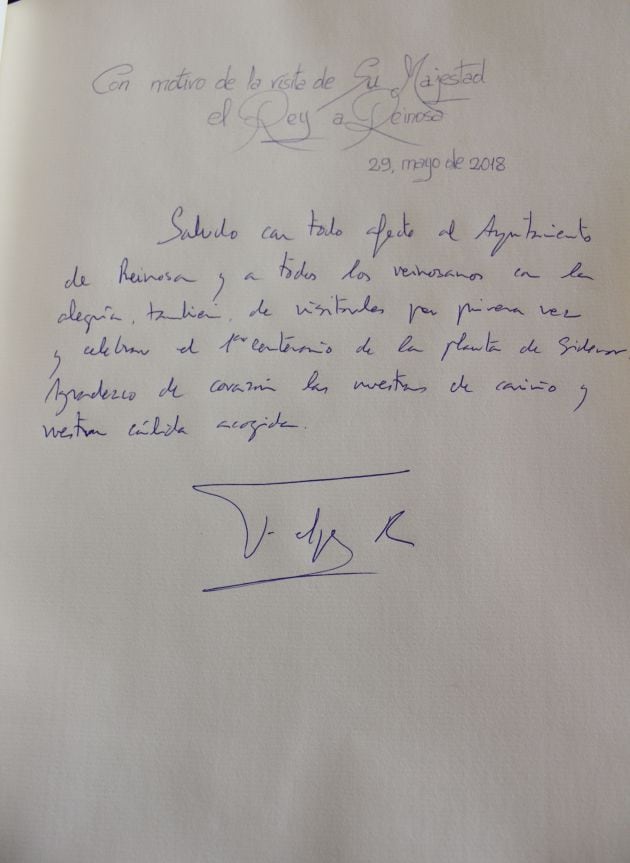 Con motivo de la visita de Su Majestad
el Rey a Reinosa
29, mayo de 2018
Saludo con todo afecto al Ayuntamiento
de Reinosa y a todos los reinosanos con la
alegría, también, de visitarles por primera vez
y celebrar el 1er centenario de la planta de Sidenor
Agradezco de corazón las muestras de cariño y
vuestra cálida acogida.
Felipe R